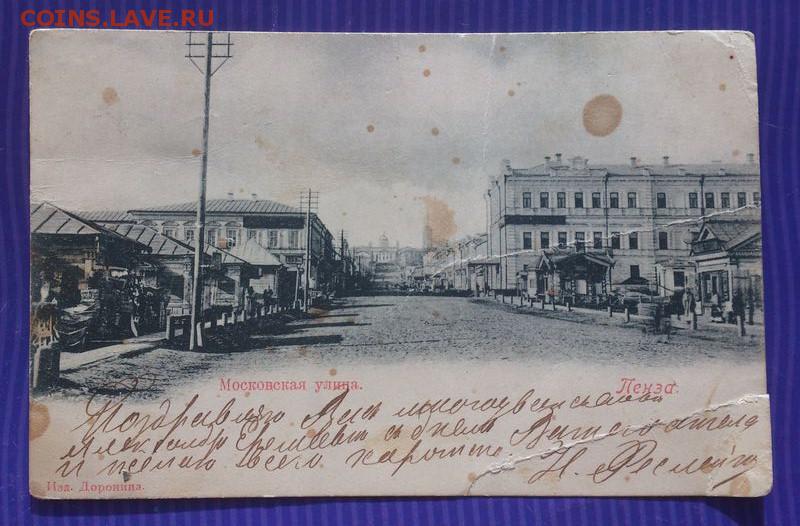 COINS.LAVE.RU
Московская улица.
Пенза.
Поздравляю Вас многоуважаемый
с днем Вашего ангела
и желаю всего хорошего. Н.
Изд. Доронина.